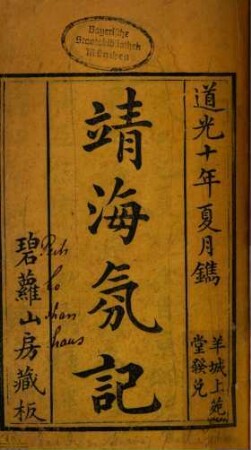 Bayerische
Staatsbibliothek
München
道光十年夏月鐫
羊城上苑
堂發兌
靖海氛記
碧蘿山房藏板
Peh
lo
shan